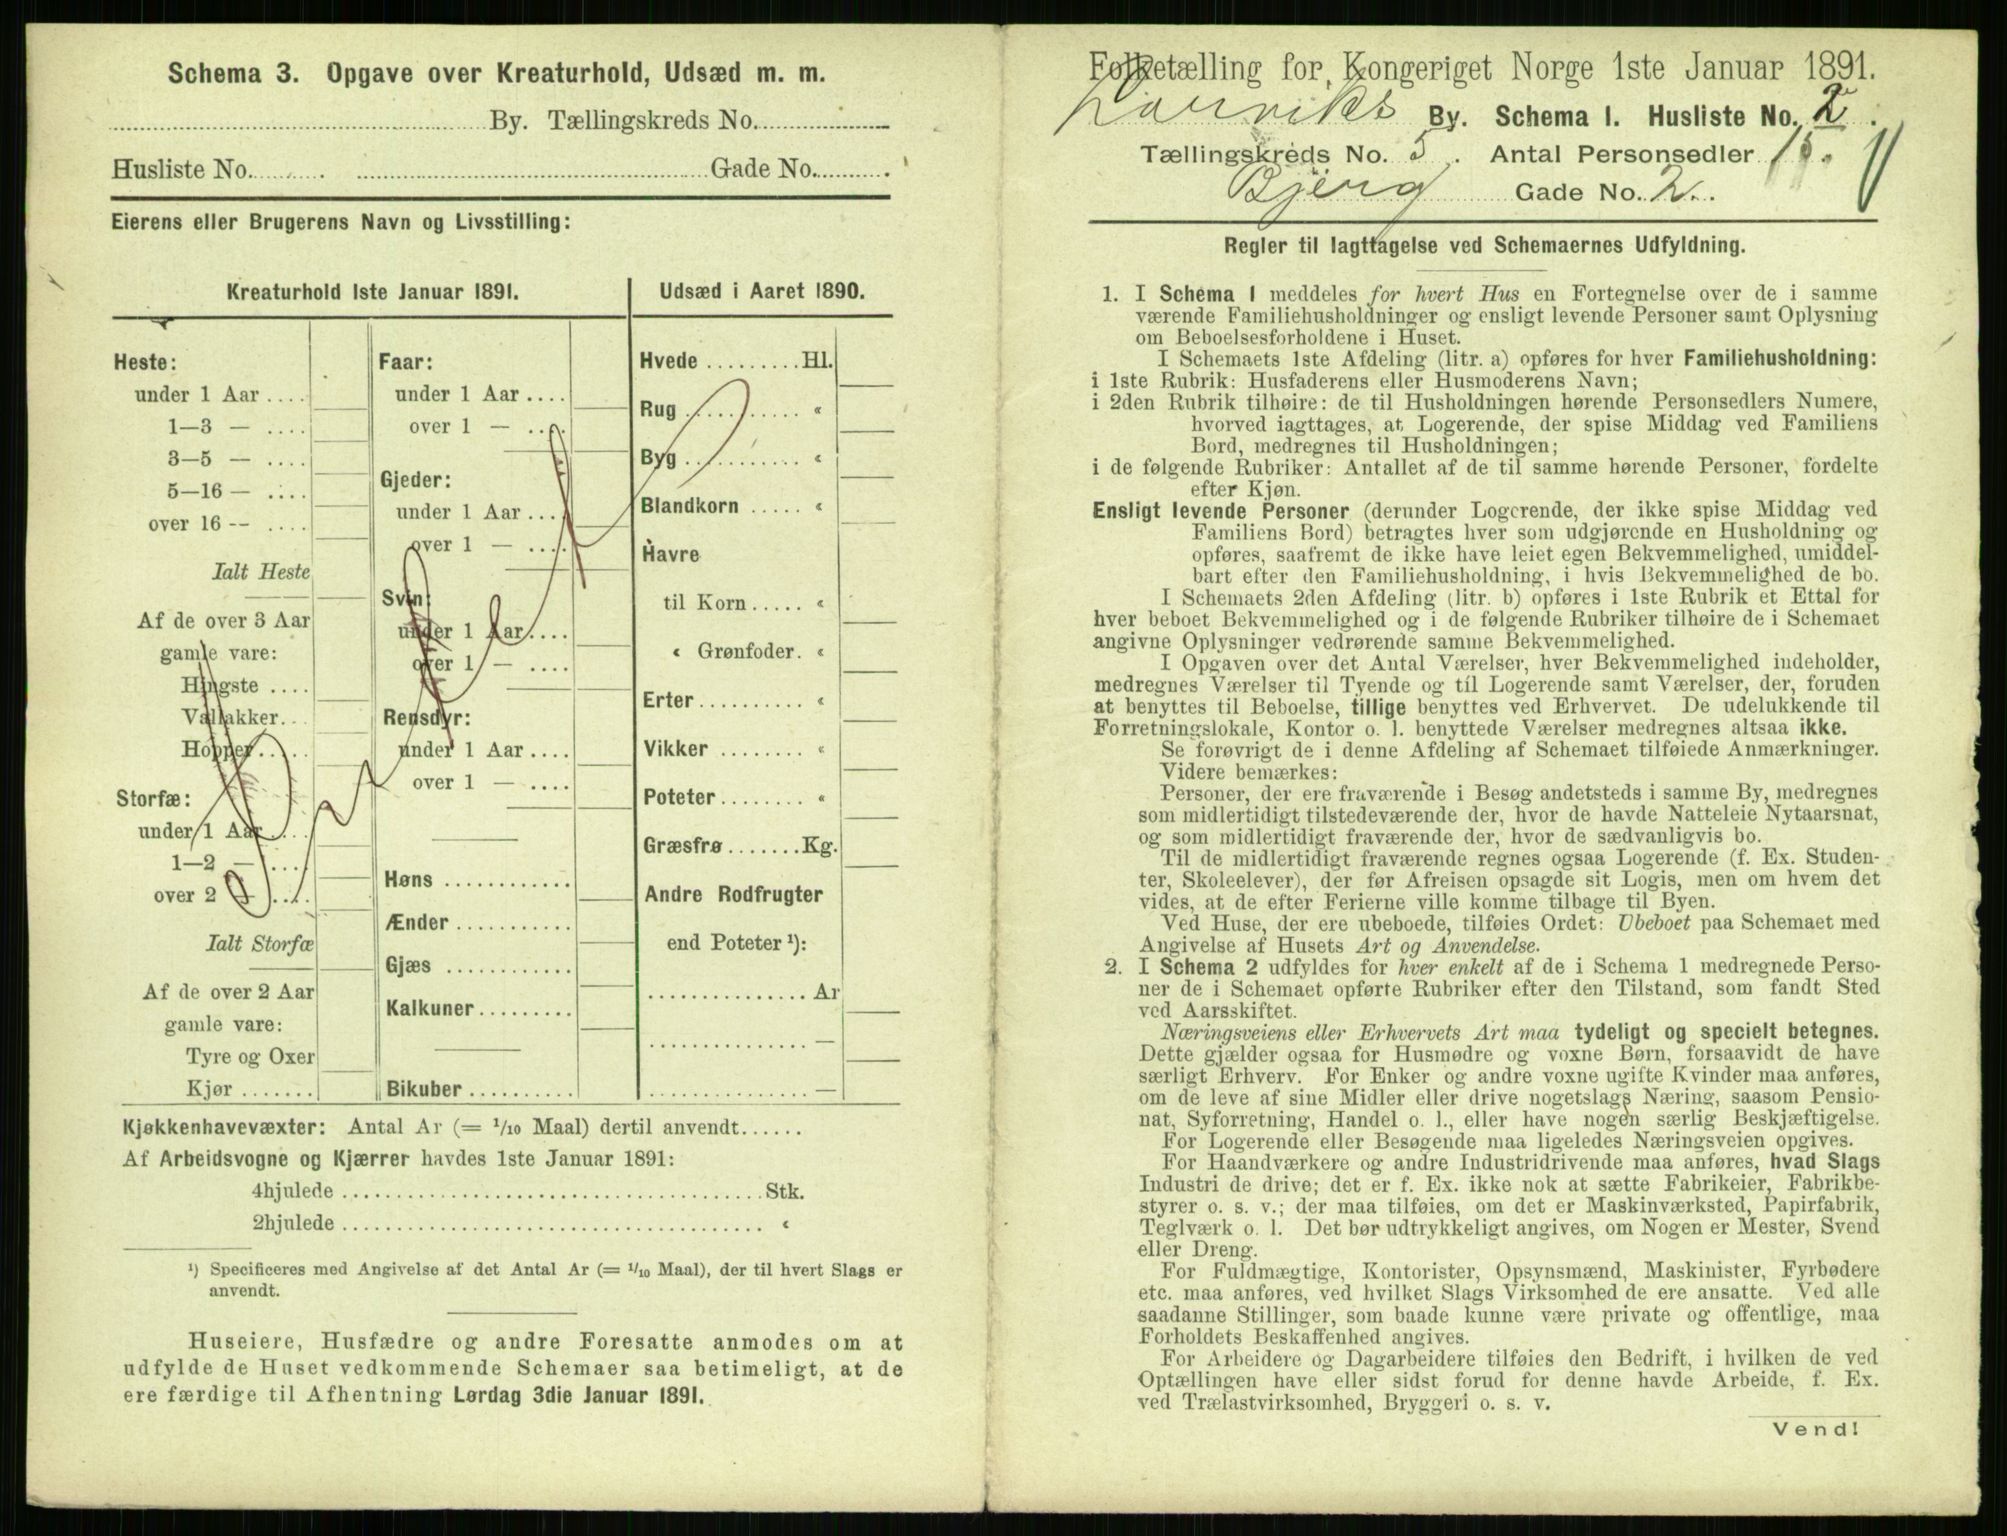 Schema 3. Opgave over Kreaturhold, Udsæd m. m.
By. Tællingskreds No.
Husliste No. Gade No.
Eierens eller Brugerens Navn og Livsstilling:
Kreaturhold 1ste Januar 1891.
Heste:
under 1 Aar ....
1—3 — ....
3—5 — ....
5—16 — ....
over 16 -- ....
Ialt Heste
Af de over 3 Aar
gamle vare:
Hingste ....
Vallakker..
Hopper.....
Storfæ:
under 1 Aar ....
1—2 — ....
over 2 — ....
Ialt Storfæ
Af de over 2 Aar
gamle vare:
Tyre og Oxer
Kjør .......
Faar:
under 1 Aar ....
over 1 — ....
Gjeder:
under 1 Aar ....
over 1 — ....
Svin:
under 1 Aar ....
over 1 — ....
Rensdyr:
under 1 Aar ....
over 1 — ....
Høns ............
Ænder ...........
Gjæs ............
Kalkuner.........
Bikuber ..........
Udsæd i Aaret 1890.
Hvede ......... Hl.
Rug ........... «
Byg ........... «
Blandkorn ..... «
Havre
til Korn ..... «
« Grønfoder. «
Erter .......... «
Vikker ........ «
Poteter ........ «
Græsfrø ....... Kg.
Andre Rodfrugter
end Poteter ¹):
............... Ar
............... —
............... —
Kjøkkenhavevæxter: Antal Ar (= 1/10 Maal) dertil anvendt......
Af Arbeidsvogne og Kjærrer havdes 1ste Januar 1891:
4hjulede ........................................ Stk.
2hjulede ........................................ «
¹) Specificeres med Angivelse af det Antal Ar (= 1/10 Maal), der til hvert Slags er
anvendt.
Huseiere, Husfædre og andre Foresatte anmodes om at
udfylde de Huset vedkommende Schemaer saa betimeligt, at de
ere færdige til Afhentning Lørdag 3die Januar 1891.
Folketælling for Kongeriget Norge 1ste Januar 1891.
Larviks By. Schema 1. Husliste No. 2.
Tællingskreds No. 5. Antal Personsedler 15.
Bjerg Gade No. 2.
Regler til Iagttagelse ved Schemaernes Udfyldning.
1. I Schema 1 meddeles for hvert Hus en Fortegnelse over de i samme
værende Familiehusholdninger og ensligt levende Personer samt Oplysning
om Beboelsesforholdene i Huset.
I Schemaets 1ste Afdeling (litr. a) opføres for hver Familiehusholdning:
i 1ste Rubrik: Husfaderens eller Husmoderens Navn;
i 2den Rubrik tilhøire: de til Husholdningen hørende Personsedlers Numere,
hvorved iagttages, at Logerende, der spise Middag ved Familiens
Bord, medregnes til Husholdningen;
i de følgende Rubriker: Antallet af de til samme hørende Personer, fordelte
efter Kjøn.
Ensligt levende Personer (derunder Logerende, der ikke spise Middag ved
Familiens Bord) betragtes hver som udgjørende en Husholdning og
opføres, saafremt de ikke have leiet egen Bekvemmelighed, umiddel-
bart efter den Familiehusholdning, i hvis Bekvemmelighed de bo.
I Schemaets 2den Afdeling (litr. b) opføres i 1ste Rubrik et Ettal for
hver beboet Bekvemmelighed og i de følgende Rubriker tilhøire de i Schemaet
angivne Oplysninger vedrørende samme Bekvemmelighed.
I Opgaven over det Antal Værelser, hver Bekvemmelighed indeholder,
medregnes Værelser til Tyende og til Logerende samt Værelser, der, foruden
at benyttes til Beboelse, tillige benyttes ved Erhvervet. De udelukkende til
Forretningslokale, Kontor o. l. benyttede Værelser medregnes altsaa ikke.
Se forøvrigt de i denne Afdeling af Schemaet tilføiede Anmærkninger.
Videre bemærkes:
Personer, der ere fraværende i Besøg andetsteds i samme By, medregnes
som midlertidigt tilstedeværende der, hvor de havde Natteleie Nytaarsnat,
og som midlertidigt fraværende der, hvor de sædvanligvis bo.
Til de midlertidigt fraværende regnes ogsaa Logerende (f. Ex. Studen-
ter, Skoleelever), der før Afreisen opsagde sit Logis, men om hvem det
vides, at de efter Ferierne ville komme tilbage til Byen.
Ved Huse, der ere ubeboede, tilføies Ordet: Ubeboet paa Schemaet med
Angivelse af Husets Art og Anvendelse.
2. I Schema 2 udfyldes for hver enkelt af de i Schema 1 medregnede Perso-
ner de i Schemaet opførte Rubriker efter den Tilstand, som fandt Sted
ved Aarsskiftet.
Næringsveiens eller Erhvervets Art maa tydeligt og specielt betegnes.
Dette gjælder ogsaa for Husmødre og voxne Børn, forsaavidt de have
særligt Erhverv. For Enker og andre voxne ugifte Kvinder maa anføres,
om de leve af sine Midler eller drive nogetslags Næring, saasom Pensio-
nat, Syforretning, Handel o. l., eller have nogen særlig Beskjæftigelse.
For Logerende eller Besøgende maa ligeledes Næringsveien opgives.
For Haandværkere og andre Industridrivende maa anføres, hvad Slags
Industri de drive; det er f. Ex. ikke nok at sætte Fabrikeier, Fabrikbe-
styrer o. s. v.; der maa tilføies, om det er Maskinværksted, Papirfabrik,
Teglværk o. l. Det bør udtrykkeligt angives, om Nogen er Mester, Svend
eller Dreng.
For Fuldmægtige, Kontorister, Opsynsmænd, Maskinister, Fyrbødere
etc. maa anføres, ved hvilket Slags Virksomhed de ere ansatte. Ved alle
saadanne Stillinger, som baade kunne være private og offentlige, maa
Forholdets Beskaffenhed angives.
For Arbeidere og Dagarbeidere tilføies den Bedrift, i hvilken de ved
Optællingen have eller sidst forud for denne havde Arbeide, f. Ex.
ved Trælastvirksomhed, Bryggeri o. s. v.
Vend!